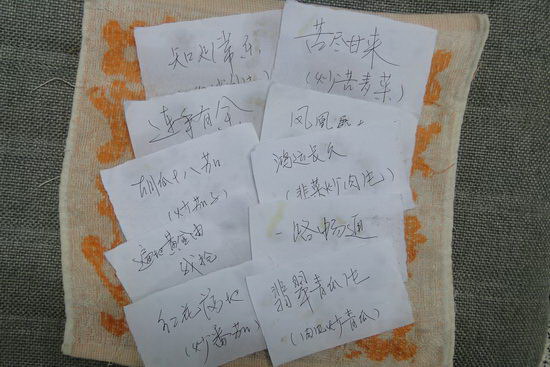 知足常乐
苦尽甘来
(炒苦麦菜)
连年有余
凤凰
鸿运长久
(韭菜炒肉片)
胡瓜十八茄
(炒茄子)
遍地黄金由
我抢
一路畅通
红花满地
(炒番茄)
翡翠青瓜片
(肉片炒青瓜)